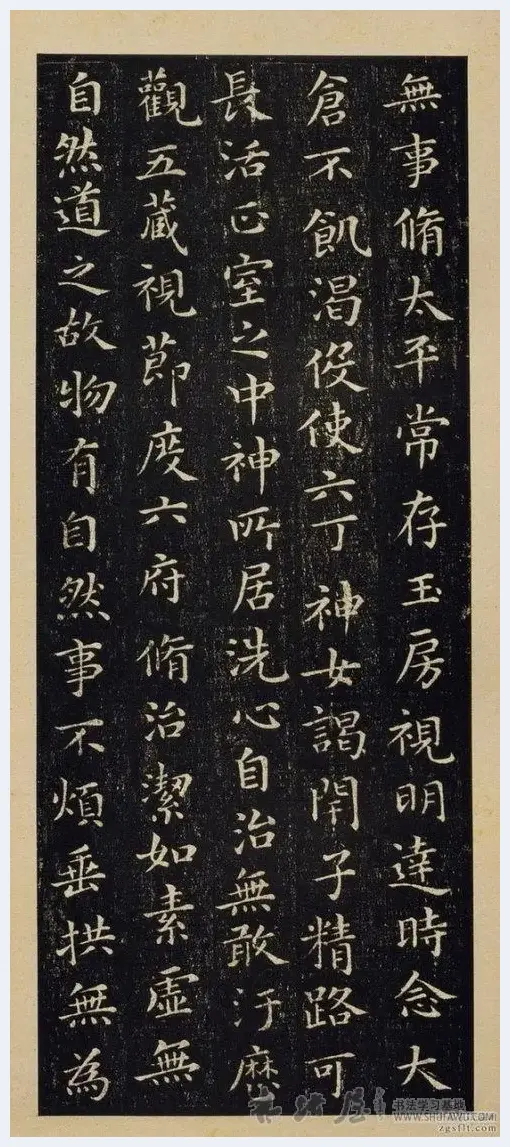 無事脩太平常存玉房視明達時念大
倉不飢渴役使六丁神女謁閇子精路可
長活正室之中神所居洗心自治無敢汙歷
觀五藏視節度六府脩治潔如素虛無
自然道之故物有自然事不煩垂拱無為
书法学习基地
www.SHUFAWU.COM
zgsflt.com